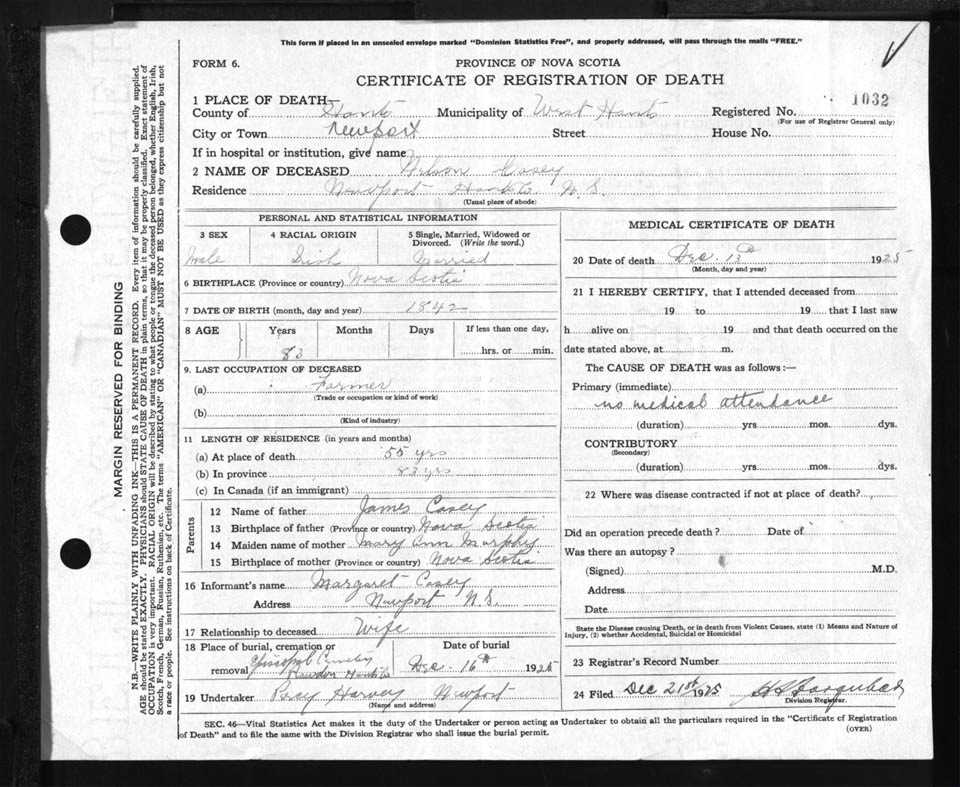 This form if placed in an unsealed envelope marked "Dominion Statistics Free", and properly addressed, will pass through the mails "FREE."
FORM 6.
PROVINCE OF NOVA SCOTIA
CERTIFICATE OF REGISTRATION OF DEATH
1032
1 PLACE OF DEATH—
County of Hants Municipality of West Hants Registered No.
(For use of Registrar General only)
City or Town Newport Street House No.
If in hospital or institution, give name
2 NAME OF DECEASED Wilson Casey
Residence Newport Hants Co. N.S.
(Usual place of abode)
PERSONAL AND STATISTICAL INFORMATION
3 SEX 4 RACIAL ORIGIN 5 Single, Married, Widowed or Divorced. (Write the word.)
Male Irish Married
6 BIRTHPLACE (Province or country) Nova Scotia
7 DATE OF BIRTH (month, day and year) 1842
8 AGE Years Months Days If less than one day,
83 hrs. or min.
9. LAST OCCUPATION OF DECEASED
(a) Farmer
(Trade or occupation or kind of work)
(b)
(Kind of industry)
11 LENGTH OF RESIDENCE (in years and months)
(a) At place of death 55 yrs
(b) In province 83 yrs
(c) In Canada (if an immigrant)
Parents
12 Name of father James Casey
13 Birthplace of father (Province or country) Nova Scotia
14 Maiden name of mother Mary Ann Murphy
15 Birthplace of mother (Province or country) Nova Scotia
16 Informant's name Margaret Casey
Address Newport N.S.
17 Relationship to deceased Wife
18 Place of burial, cremation or removal Episcopal Cemetery Rawdon Hants Co
Date of burial
Dec. 16th 1925
19 Undertaker Percy Harvey Newport
(Name and address)
MEDICAL CERTIFICATE OF DEATH
20 Date of death Dec. 13th 1925
(Month, day and year)
21 I HEREBY CERTIFY, that I attended deceased from
19 to 19 that I last saw
h alive on 19 and that death occurred on the
date stated above, at m.
The CAUSE OF DEATH was as follows:—
Primary (immediate)
no medical attendance
(duration) yrs. mos. dys.
CONTRIBUTORY
(Secondary)
(duration) yrs. mos. dys.
22 Where was disease contracted if not at place of death?
Did an operation precede death? Date of
Was there an autopsy?
(Signed) M.D.
Address
Date
State the Disease causing Death, or in death from Violent Causes, state (1) Means and Nature of
Injury, (2) whether Accidental, Suicidal or Homicidal
23 Registrar's Record Number
24 Filed Dec 21st 1925
Division Registrar.
SEC. 46—Vital Statistics Act makes it the duty of the Undertaker or person acting as Undertaker to obtain all the particulars required in the "Certificate of Registration
of Death" and to file the same with the Division Registrar who shall issue the burial permit.
(OVER)
MARGIN RESERVED FOR BINDING
N.B.—WRITE PLAINLY WITH UNFADING INK—THIS IS A PERMANENT RECORD. Every item of information should be carefully supplied.
AGE should be stated EXACTLY. PHYSICIANS should STATE CAUSE OF DEATH in plain terms, so that it may be properly classified. Exact statement of
OCCUPATION is very important. RACIAL ORIGIN will be described by stating to what people or tongue the deceased person belonged, whether English, Irish,
Scotch, French, German, Russian, Ruthenian, etc. The terms "AMERICAN" OR "CANADIAN" MUST NOT BE USED as they express citizenship but not
a race or people. See instructions on back of Certificate.